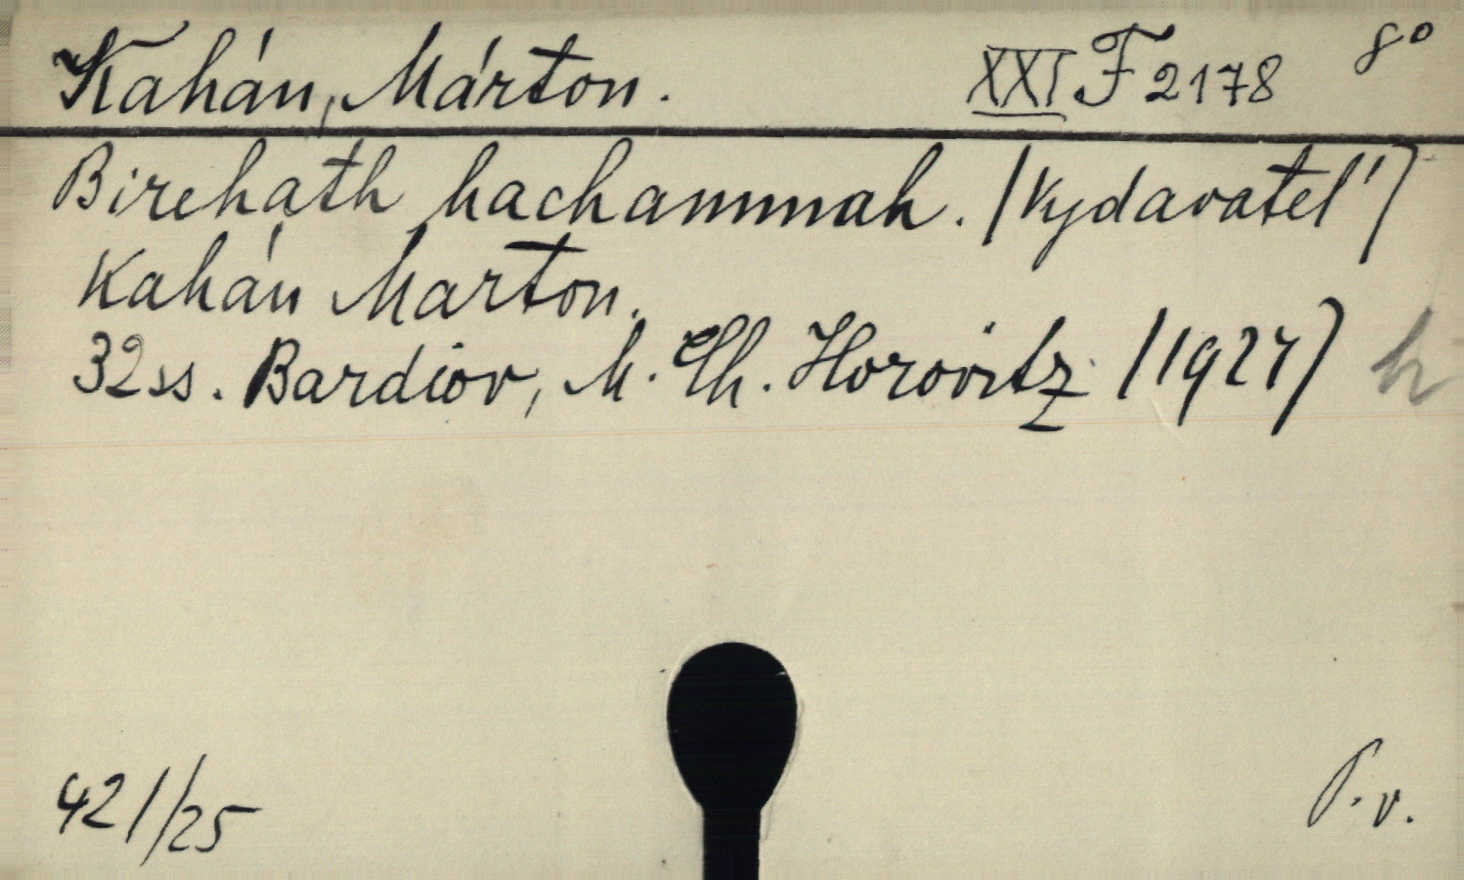 Kahán, Márton. XXI F 2178 8°
Birchath hachammah. (Vydavateľ)
Kahán Marton.
32 ss. Bardiov, M. Ch. Horovitz (1927)
421/25 P.v.